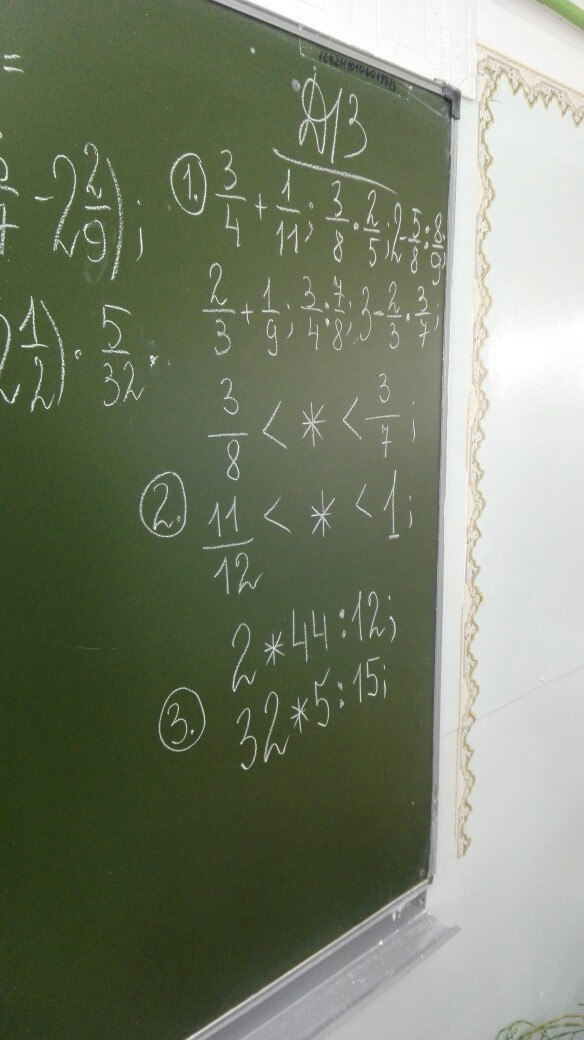 =
- 2 2/9);
2 1/2) · 5/32 .
Д/З
1. 3/4 + 1/11; 3/8 · 2/5; 2 - 5/8 : 8/9;
2/3 + 1/9; 3/4 : 7/8; 3 - 2/3 · 3/7;
3/8 < * < 3/7;
2. 11/12 < * < 1;
2 * 44 : 12;
3. 32 * 5 : 15;